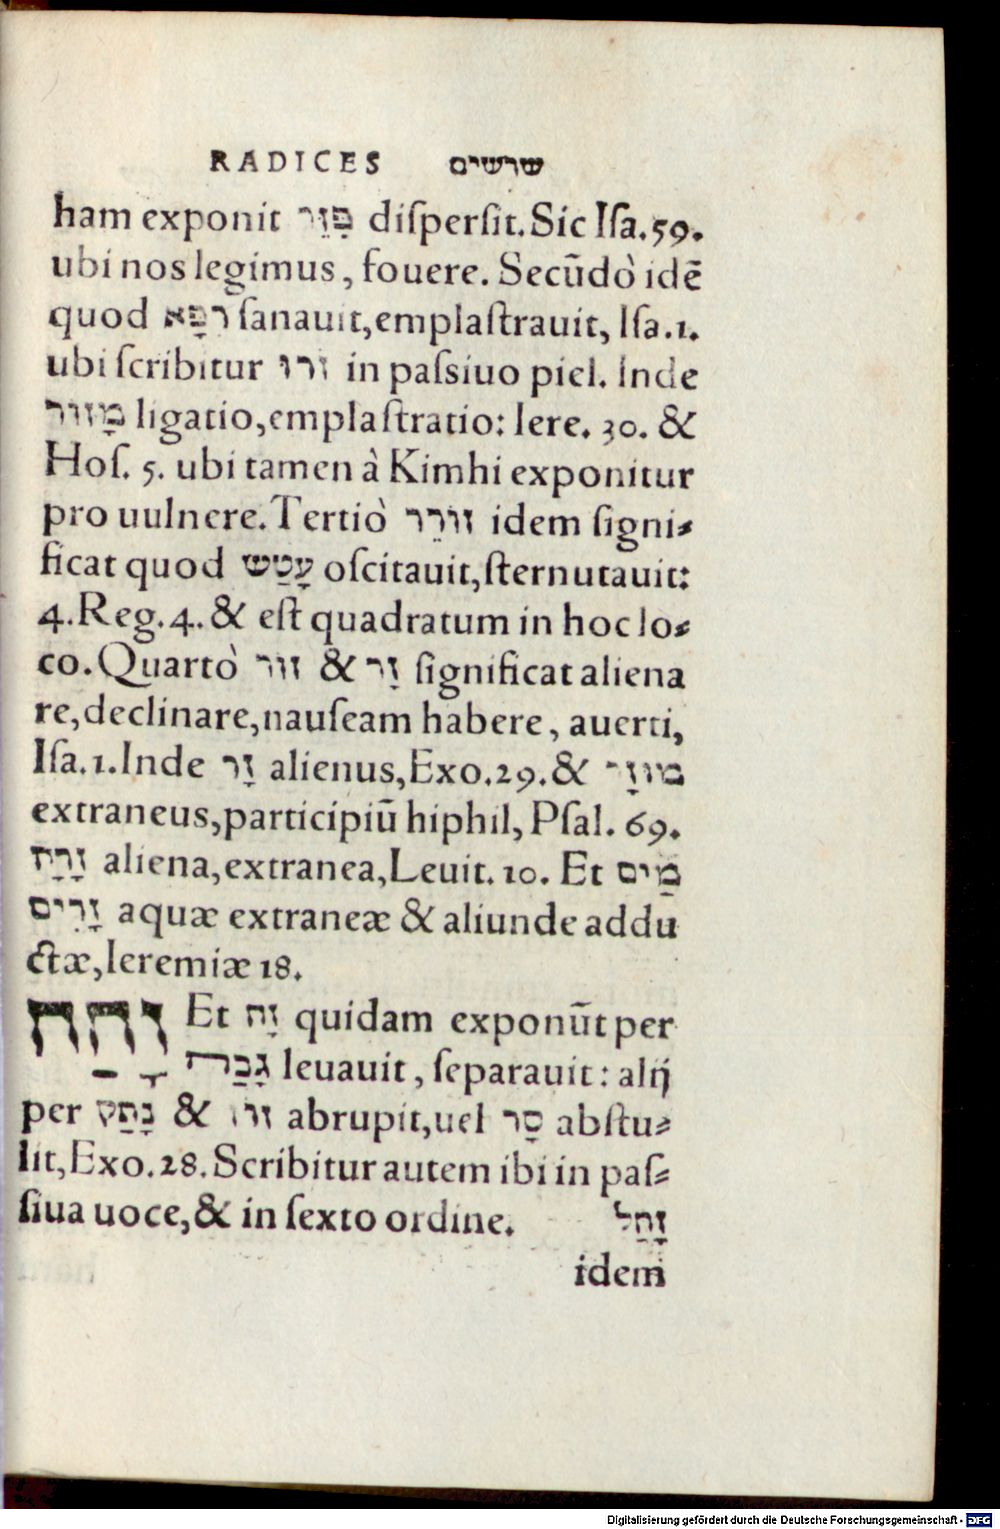 RADICES שרשים
ham exponit פִּזֵּר diſperſit. Sic Iſa. 59.
ubi nos legimus, fouere. Secũdò idẽ
quod רָפָא ſanauit, emplaſtrauit, Iſa. 1.
ubi ſcribitur זרו in paſsiuo piel. Inde
מָזור ligatio, emplaſtratio: Iere. 30. &
Hoſ. 5. ubi tamen à Kimhi exponitur
pro uulnere. Tertiò זורֵר idem ſigni⸗
ficat quod עָטַש oſcitauit, ſternutauit:
4. Reg. 4. & eſt quadratum in hoc lo⸗
co. Quartò זור & זָר ſignificat aliena
re, declinare, nauſeam habere, auerti,
Iſa. 1. Inde זָר alienus, Exo. 29. & מוזָר
extraneus, participiũ hiphil, Pſal. 69.
זָרָה aliena, extranea, Leuit. 10. Et מַים
זָרִים aquæ extraneæ & aliunde addu
ctæ, Ieremiæ 18.
זָחַח Et זָח quidam exponũt per
גָבַהּ leuauit, ſeparauit: alij
per נָתַק & זרו abrupit, uel סָר abſtu⸗
lit, Exo. 28. Scribitur autem ibi in paſ⸗
ſiua uoce, & in ſexto ordine. זָחַל
idem
Digitalisierung gefördert durch die Deutsche Forschungsgemeinschaft - DFG